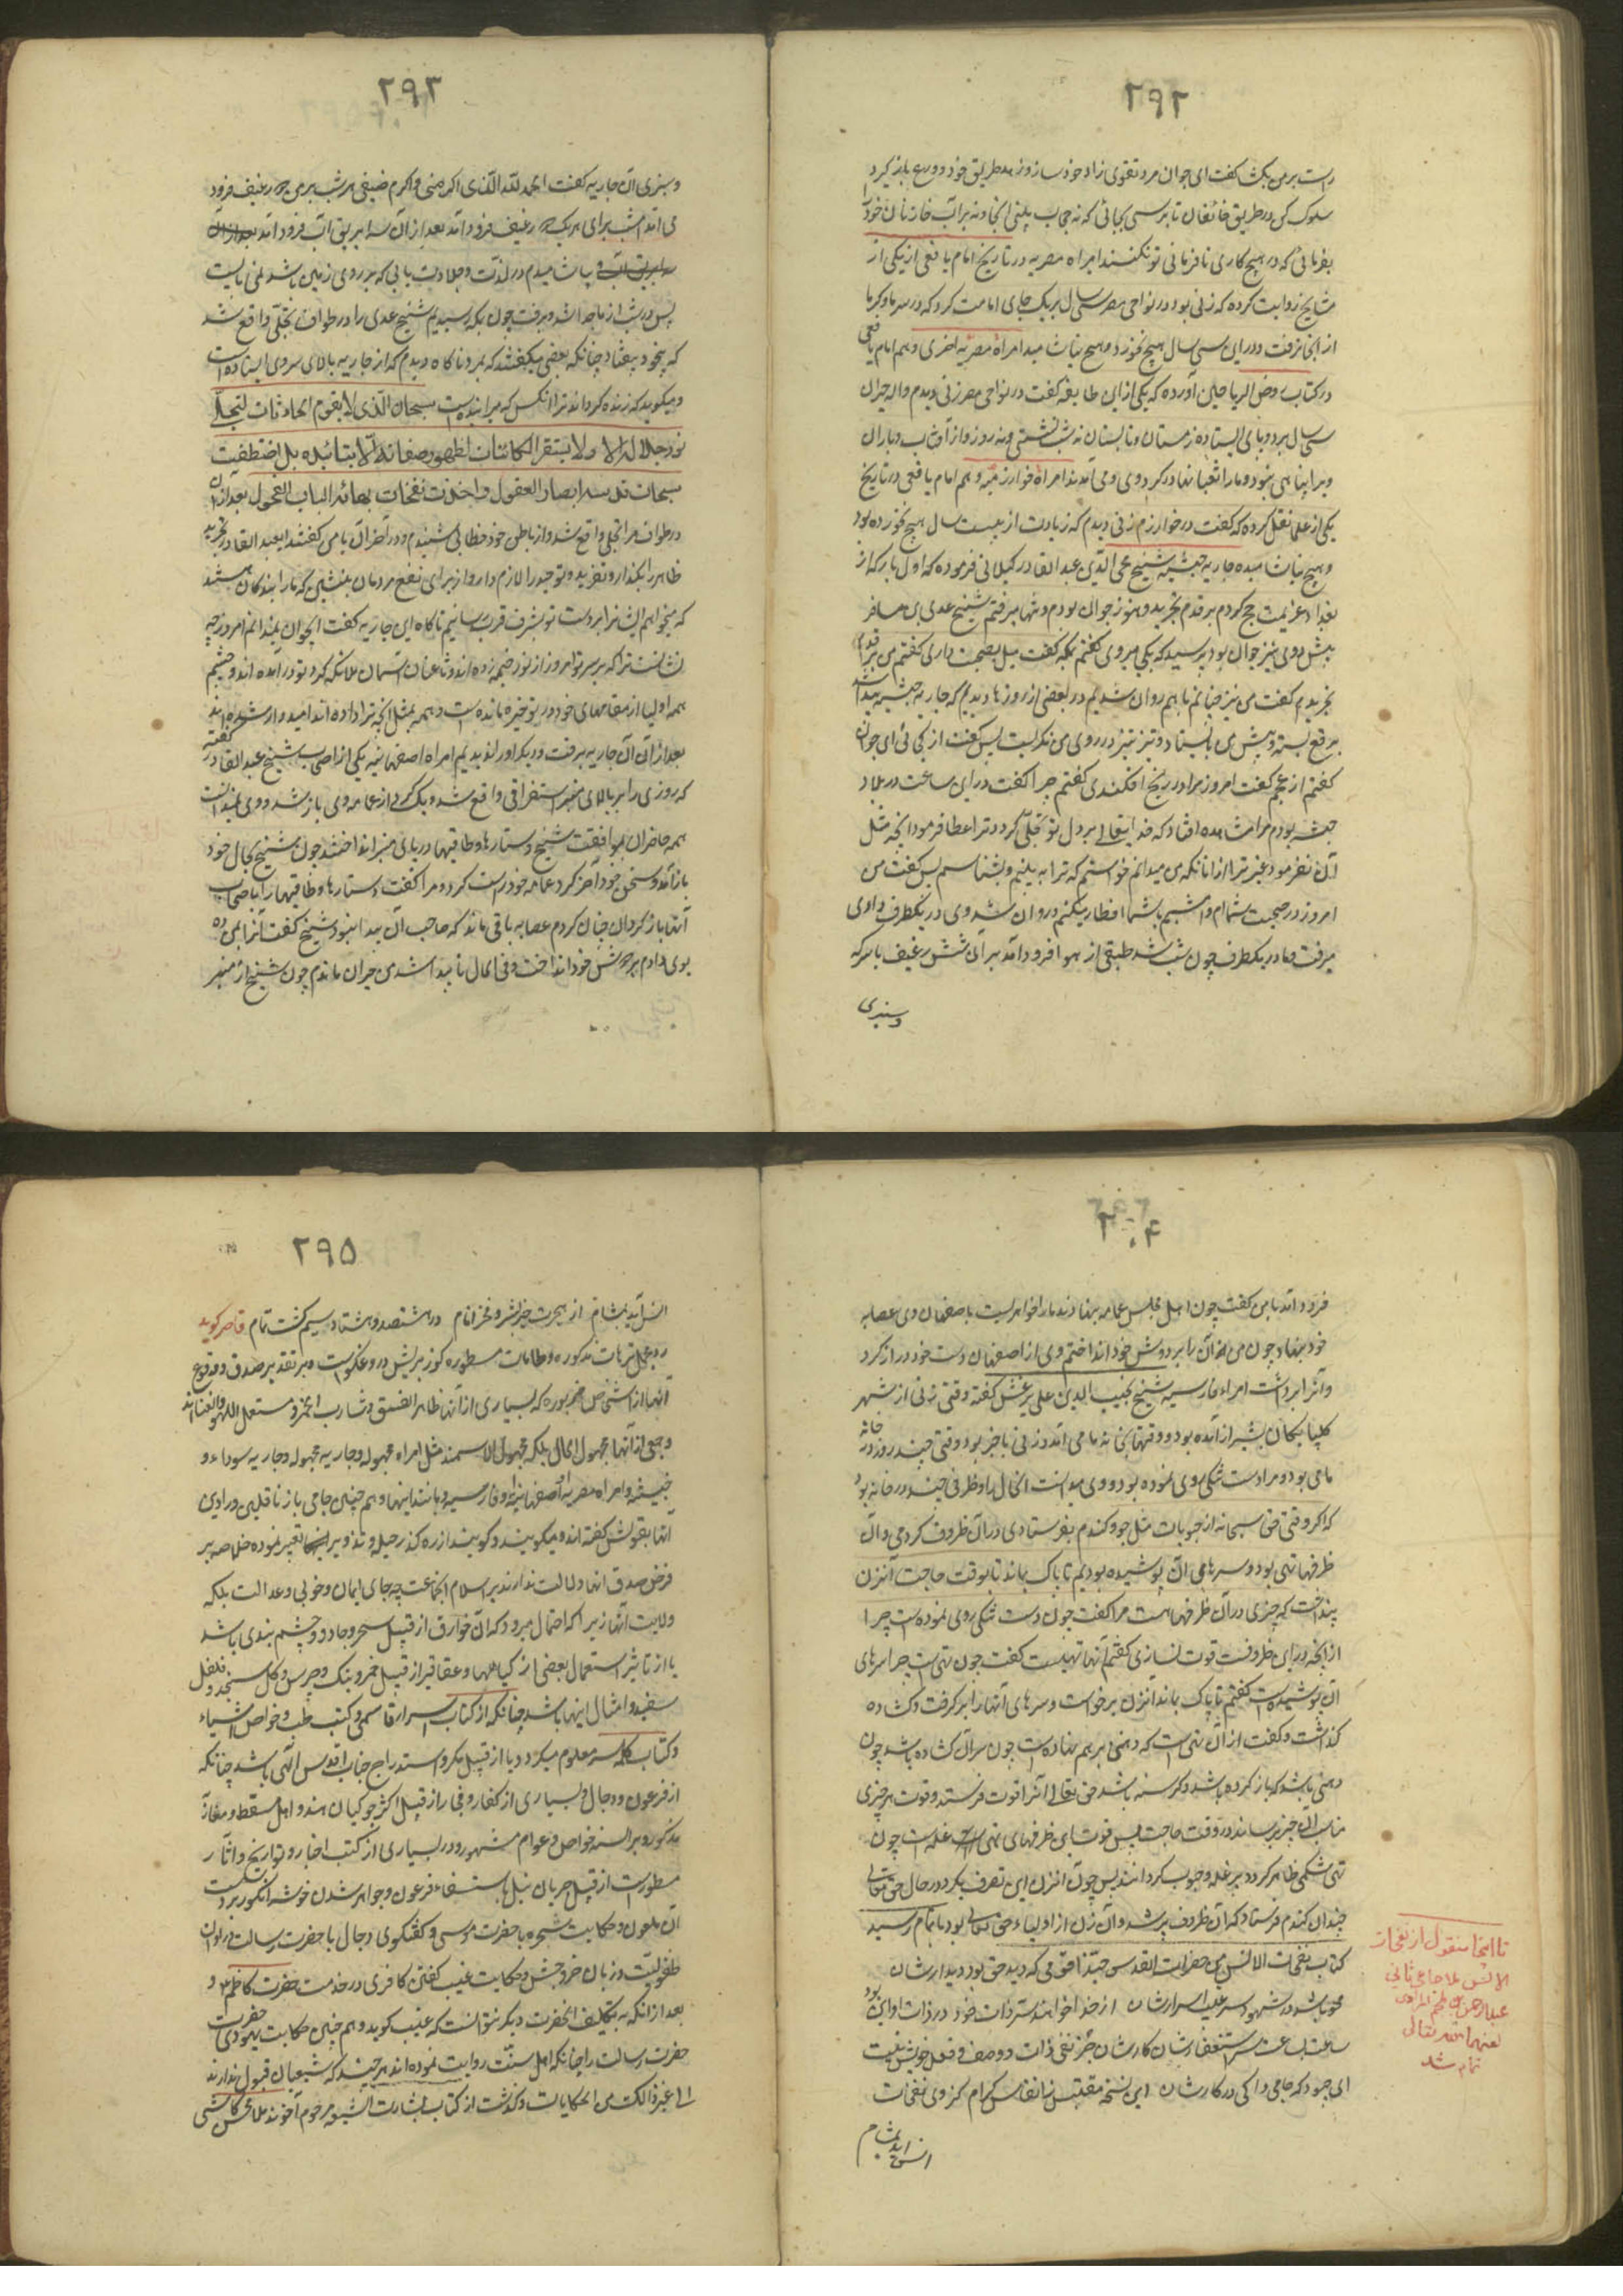 ۲۹۲
راست بر من بکشت گفت ای جوان مرد تقوی زاد خود ساز و زهد طریق خود و ورع باز گرد
سلوک کن در طریق خائفان تا برسی بجائی که نه حجاب بینی آنجا و نه بواب خازنان خود را
بفرمائی که در هیچ کاری نافرمانی تو نکنند امراه مصریه در تاریخ امام یافعی از یکی از
مشایخ روایت کرده که زنی بود در نواحی مصر سی سال بر یک جای اقامت کرد که در سرما و گرما
از آنجا نرفت و در این سی سال هیچ نخورد و هیچ نیاشامید امراة مصریه اخری و هم امام یافعی
در کتاب روض الریاحین آورده که یکی از این طایفه گفت در نواحی مصر زنی دیدم واله حیران
سی سال بر دو پای ایستاده زمستان و تابستان نه شب نشستی و نه روز و از آفتاب و باران
ویرا پناهی نبود و ماران و ثعبانها در گرد وی می آمدند امراة خوارزمیه و هم امام یافعی در تاریخ
یکی از علما نقل کرده که گفت در خوارزم زنی دیدم که زیادت از بیست سال هیچ نخورده بود
و هیچ نیاشامیده جاریه حبشیه شیخ محی الدین عبد القادر گیلانی فرموده که اول بار که از
بغداد عزیمت حج کردم بر قدم تجرید و هنوز جوان بودم و تنها میرفتم شیخ عدی بن مسافر
پیش و وی نیز جوان بود پرسید که بکجا میروی گفتم بمکه گفت میل بصحبت داری گفتم من بر قدم
تجریدم گفت من نیز چنانم با هم روان شدیم در بعضی از روزها دیدیم که جاریه حبشیه پیدا شد
برقع بسته و پیش من بایستاد و تیز تیز در روی من نگریست پس گفت از کجائی ای جوان
گفتم از عجم گفت امروز مرا در رنج افکندی گفتم چرا گفت در این ساعت در بلاد
حبشه بودم مرا مشاهده افتاد که خدایتعالی بر دل تو تجلی کرد و ترا عطا فرمود آنچه مثل
آن نفرمود غیر ترا از آنانکه من میدانم خواستم که ترا به بینم و بشناسم پس گفت من
امروز در صحبت شمایم و امشب با شما افطار میکنم و روان شد وی در یکطرف وادی
میرفت و ما در یکطرف چون شب شد طبقی از هوا فرود آمد بر آن شش رغیف با سرکه
و سبزی
۲۹۳
و سبزی آن جاریه گفت الحمد لله الذی اکرمنی و اکرم ضیفی هر شب بر من دو رغیف فرود
می آمد امشب برای هر یک دو رغیف فرود آمد بعد از آن سه ابریق آب فرود آمد بعد از آن
سه ابریق آب و بیاشامیدم در لذت و حلاوت بآبی که بر روی زمین باشد نمی مانست
پس در شب از ما جدا شد و برفت چون بمکه رسیدیم شیخ عدی را در طواف تجلی واقع شد
که بیخود بیفتاد چنانکه بعضی میگفتند که بمرد ناگاه دیدم که آن جاریه بالای سر وی ایستاده است
و میگوید که زنده گرداند ترا آنکس که میرانیده است سبحان الذی لا یقوم الحادثات لتجلی
نور جلاله الا ولا یستقر الکائنات لظهور صفاته الا بتائیده بل اختطفت
سبحات قدسه ابصار العقول و اخذت نفحات بهائه الباب الفحول بعد از آن
در طواف مرا تجلی واقع شد و از باطن خود خطابی شنیدم و در آخر آن با من گفتند ای عبد القادر تجرید
ظاهر را بگذار و تفرید و توحید را لازم دار و از برای نفع مردمان بنشین که ما را بندگان هستند
که میخواهیم ایشانرا بر دست تو بشرف قرب رسانیم ناگاه این جاریه گفت ای جوان نمیدانم امروز چه
نشانست ترا که بر سر تو امروز از نور خیمه زده اند و تا عنان آسمان ملائکه گرد تو در آمده اند و چشم
همه اولیا از مقامهای خود در تو خیره مانده است و همه بمثل آنچه ترا داده اند امیدوار شده اند
بعد از آن آن جاریه برفت و دیگر او را ندیدیم امراه اصفهانیه یکی از اصحاب شیخ عبد القادر گفته
که روزی را بر بالای منبر استغراقی واقع شد و یک کور از عمامه وی باز شد و وی ندانست
همه حاضران بموافقت شیخ دستارها و طاقیها در پای منبر انداختند چون شیخ بحال خود
باز آمد و سخن خود آخر کرد عمامه خود راست کرد و مرا گفت دستارها و طاقیها را باصحاب
آنها باز گردان چنان کردم عصابه باقی ماند که صاحب آن پیدا نبود شیخ گفت آنرا بمن ده
بوی دادم بر دوش خود انداخت و فی الحال ناپیدا شد من حیران ماندم چون شیخ از منبر
۲۹۴
فرود آمد با من گفت چون اهل مجلس عمامه بنهادند ما را خواهریست باصفهان وی عصابه
خود بنهاد چون من آن را بر دوش خود انداختم وی از اصفهان دست خود دراز کرد
و آنرا برداشت امراه فارسیه شیخ نجیب الدین علی بزغش گفته وقتی زنی از شهر
گلپایگان بشیراز آمده بود و وقتها بخانه ما می آمد و زنی با خبر بود وقتی چند روز در خانه
ما می بود و مرا دست تنگی روی نموده بود و وی میدانست الحال را و ظرفی چند در خانه بود
که اگر وقتی حق سبحانه از حبوبات مثل جو و گندم بفرستادی در آن ظروف کردمی و آن
ظرفها تهی بود و سرهای آن پوشیده بودیم تا پاک بماند تا بوقت حاجت آنزن
پنداشت که چیزی در آن ظرفها هست مرا گفت چون دست تنگی روی نموده است چرا
از آنچه در این ظروفست قوت نسازی گفتم آنها تهیست گفت چون تهی است چرا سرهای
آن پوشیده است گفتم تا پاک بماند آنزن برخواست و سرهای آنها را بر گرفت و گشاده
گذاشت و گفت از آن تهی است که دهنی بر هم نهاده است چون سر آن گشاده باشد چون
دهنی باشد که باز کرده باشد و گرسنه باشد حق تعالی آنرا قوت فرستد و قوت هر چیزی
مناسب آن چیز برساند در وقت حاجت پس قوت این ظرفهای تهی غله است چون
تهی شکمی ظاهر گردد پر غله و حبوب گردانند پس چون آنزن این تصرف بکرد در حال حق تعالی
چندان گندم فرستاد که آن ظروف پر شد و آن زن از اولیاء حق تعالی بود باتمام رسید
کتاب نفحات الانس من حضرات القدس حبذا قومی که دید حق بود دیدارشان
محو باشد در شهود سر غیب اسرارشان از خدا خواهند ستر ذات خود در ذات او این بود
ساعت بساعت سر استغفارشان کارشان جز نفی ذات و وصف و فعل خویش نیست
ای جود که جامی را کی در کارشان این نسخه مقتبس ز انفاس کرام کز وی نفحات
انس آید بمشام
تا اینجا منقول از نفحات
الانس ملا جامی ثانی
عبد الرحمن بن ملجم المرادی
لعنهما الله تعالی
تمام شد
۲۹۵
انس آید بمشام از هجرت خیر بشر و فخر انام در هشتصد و هشتاد و سیم گشت تمام قاصر گوید
بر تقدیر صدق و وقوع
آنها از اشخاص مزبوره که بسیاری از آنها ظاهر الفسق و شارب الخمر و مستعمل اللهو و الغنا اند
و جمعی از آنها مجهول الحال بلکه مجهول الاسمند مثل امراه مجهوله و جاریه مجهوله و جاریه سوداء و
حبشیه و امراه مصریه و اصفهانیه و فارسیه و مانند اینها و هم چنین جامی باز ناقلین و راوین
فرض صدق آنها دلالت ندارند بر اسلام اینجماعت چه جای ایمان و خوبی و عدالت بلکه
ولایت آنها زیرا که احتمال میرود که آن خوارق از قبیل سحر و جادو و چشم بندی باشد
یا از تاثیر استعمال بعضی از گیاهها و عقاقیر از قبیل خمر و بنک و چرس و
سفید و امثال اینها باشد چنانکه از کتاب اسرار قاسمی و کتب طب و خواص اشیاء
و کتاب کله سر معلوم میگردد و یا از قبیل مکر و استدراج جناب اقدس الهی باشد چنانکه
از فرعون و دجال و بسیاری از کفار و فجار از قبیل اکثر جوکیان هند و اهل مسقط و
مذکور و بر السنه خواص و عوام مشهور و در بسیاری از کتب اخبار و تواریخ و آثار
مسطور است از قبیل جریان نیل باستدعاء فرعون و جواهر شدن خوشه انگور بر دست
آن ملعون و حکایت شجره با حضرت موسی و گفتگوی دجال با حضرت رسالت در اوان
طفولیت و زبان خروجش و حکایت غیب گفتن کافری در خدمت حضرت کاظم ع و
بعد از آنکه به تکلیف آنحضرت دیگر نتوانست که غیب گوید و هم چنین حکایت یهودی حضرت
حضرت رسالت را چنانکه اهل سنت روایت نموده اند هر چند که شیعیان قبول ندارند
الی غیر ذالک من الحکایات و گذشت از کتاب بشارت الشیعه مرحوم آخوند ملا محسن کاشی